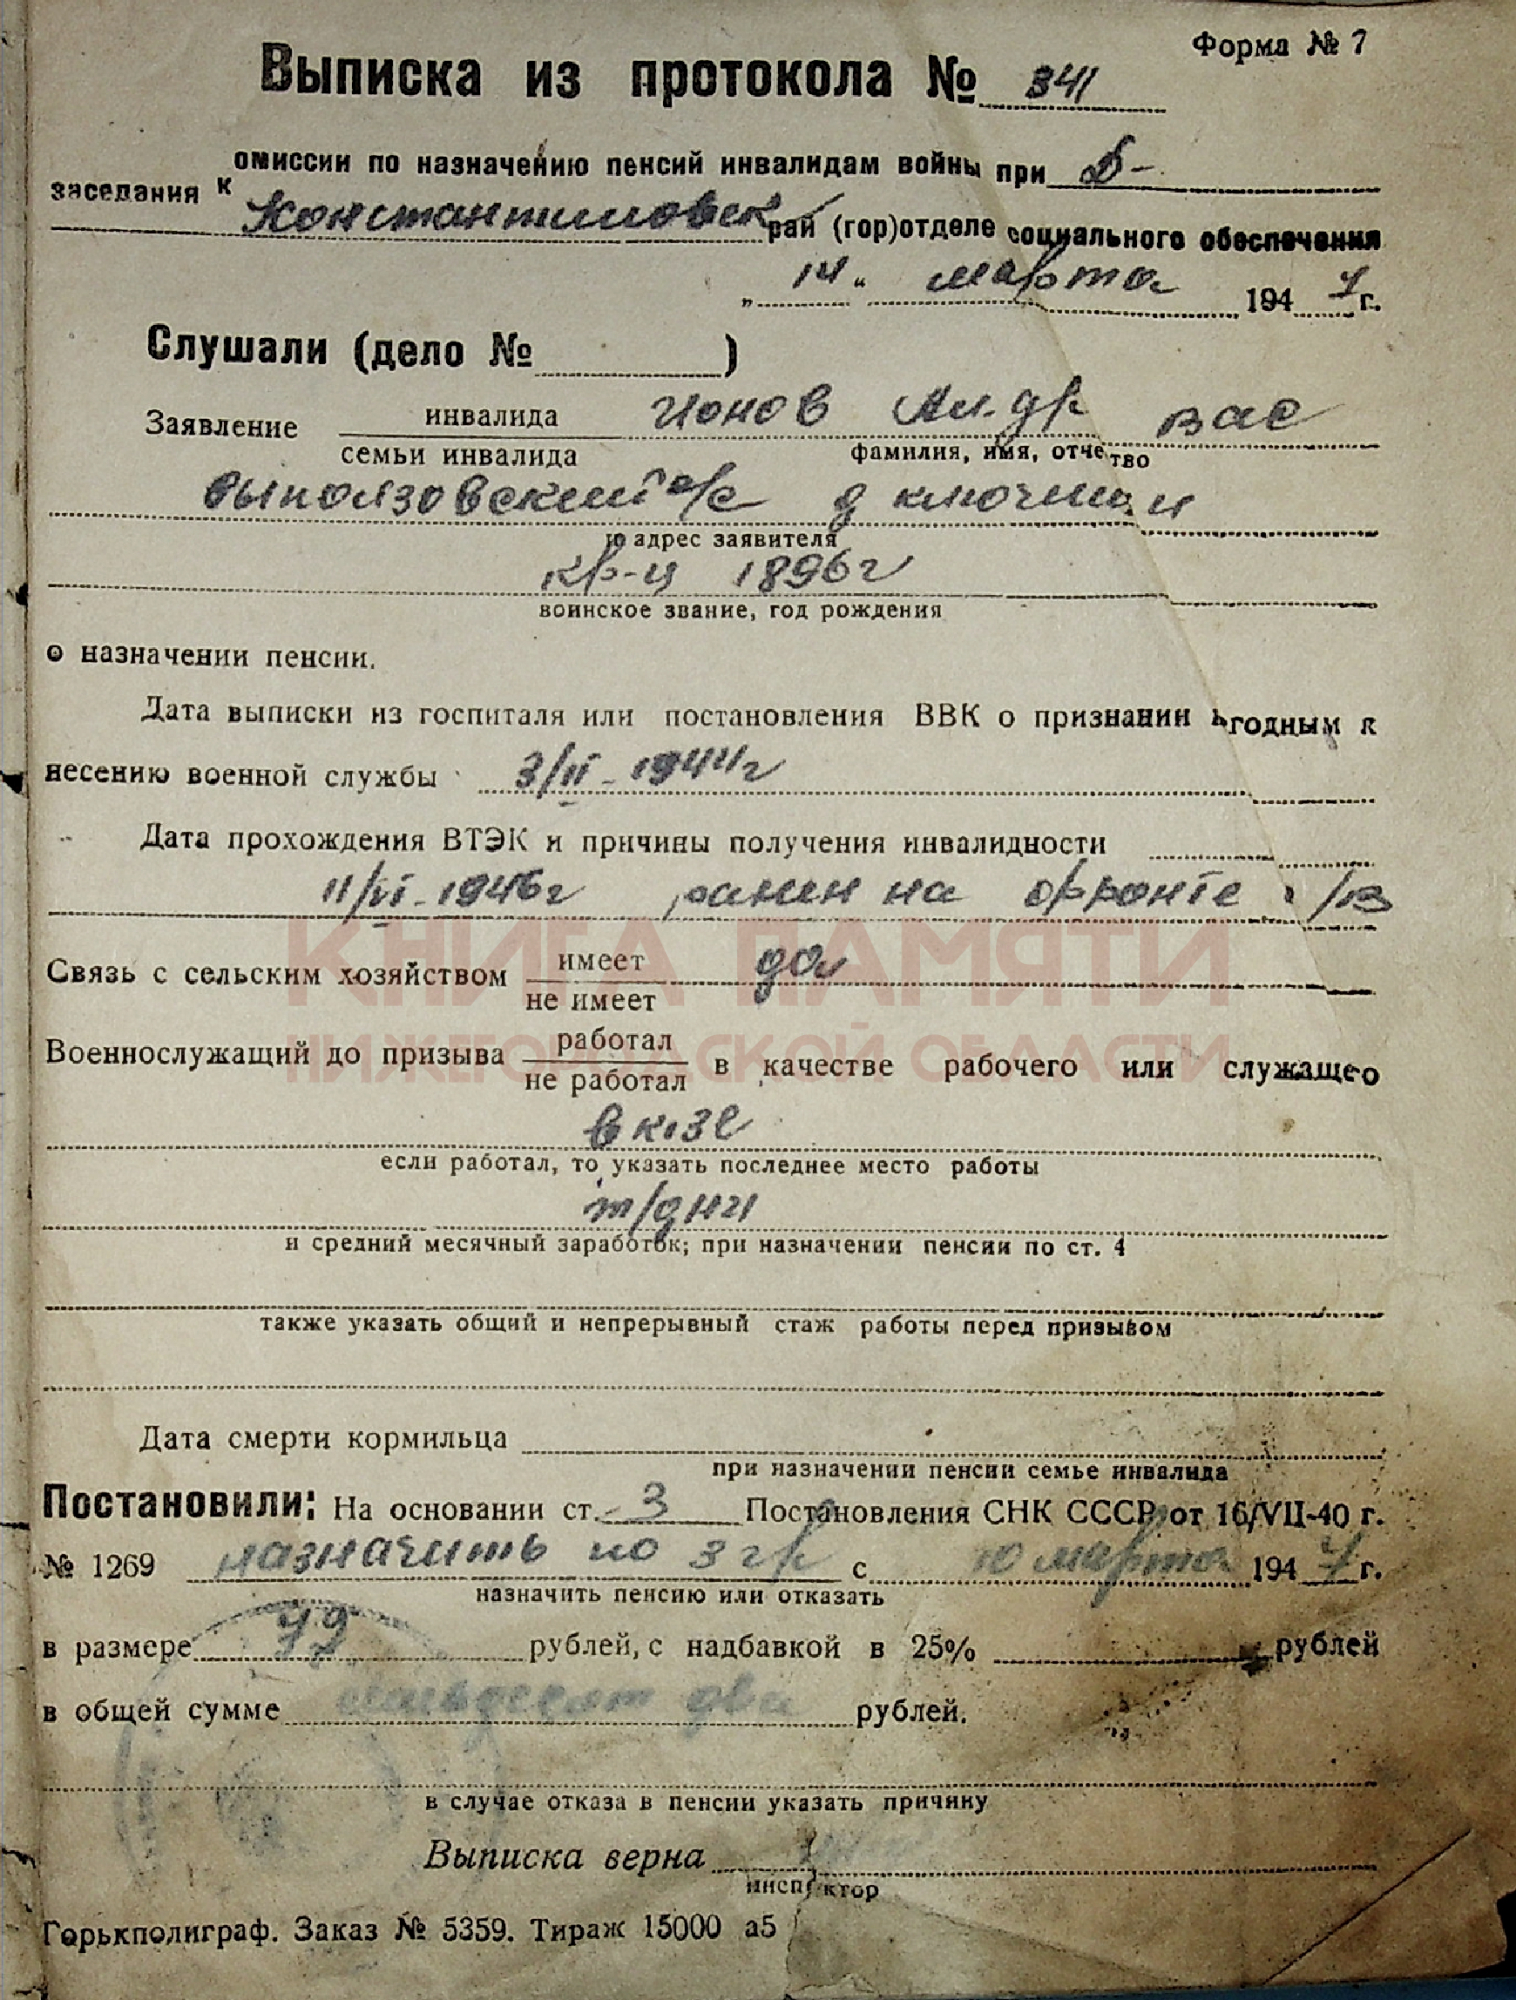 Форма № 7
Выписка из протокола № 341
заседания комиссии по назначению пенсий инвалидам войны при Д-
Константиновск рай (гор)отделе социального обеспечения
„ 14 “ марта 1947 г.
Слушали (дело № )
Заявление инвалида Ионов Ал-др Вас
семьи инвалида фамилия, имя, отчество
Выползовский с/с д Ключищи
и адрес заявителя
кр-ц 1896г
воинское звание, год рождения
о назначении пенсии.
Дата выписки из госпиталя или постановления ВВК о признании годным к
несению военной службы 3/II-1944г
Дата прохождения ВТЭК и причины получения инвалидности
11/VI-1946г ранен на фронте
Связь с сельским хозяйством имеет да
не имеет
Военнослужащий до призыва работал
не работал в качестве рабочего или служащего
в к-зе
если работал, то указать последнее место работы
т/дни
и средний месячный заработок; при назначении пенсии по ст. 4
также указать общий и непрерывный стаж работы перед призывом
Дата смерти кормильца
при назначении пенсии семье инвалида
Постановили: На основании ст. 3 Постановления СНК СССР от 16/VII-40 г.
№ 1269 назначить по 3 гр с 10 марта 1947 г.
назначить пенсию или отказать
в размере 72 рублей, с надбавкой в 25% рублей
в общей сумме два рублей.
в случае отказа в пенсии указать причину
Выписка верна
инспектор
Горькполиграф. Заказ № 5359. Тираж 15000 а5
КНИГА ПАМЯТИ
НИЖЕГОРОДСКОЙ ОБЛАСТИ